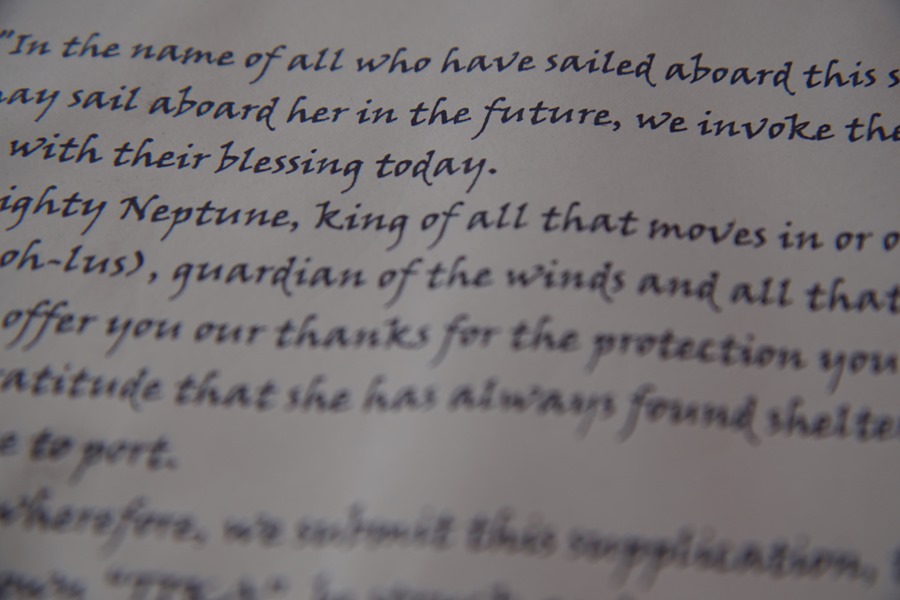 "In the name of all who have sailed aboard this s
ay sail aboard her in the future, we invoke the
with their blessing today.
ighty Neptune, king of all that moves in or o
oh-lus), guardian of the winds and all that
offer you our thanks for the protection you
atitude that she has always found shelte
e to port.
wherefore, we submit this supplication,